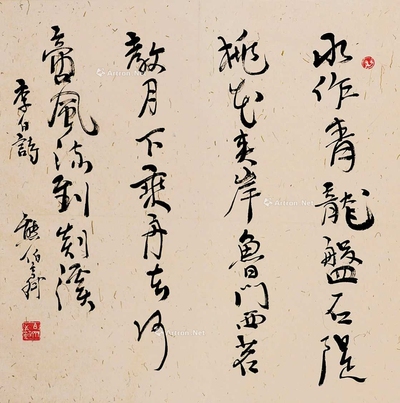 水作青龍盤石隄
桃花夾岸魯門西若
教月下乘舟去何
啻風流到剡溪
李白詩 熊伯齊